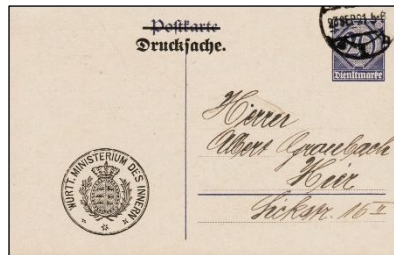 Postkarte
Drucksache.
SEP. 21
Dienstmarke
WÜRTT. MINISTERIUM DES INNERN
Herrn
Albert
Hier
16 II